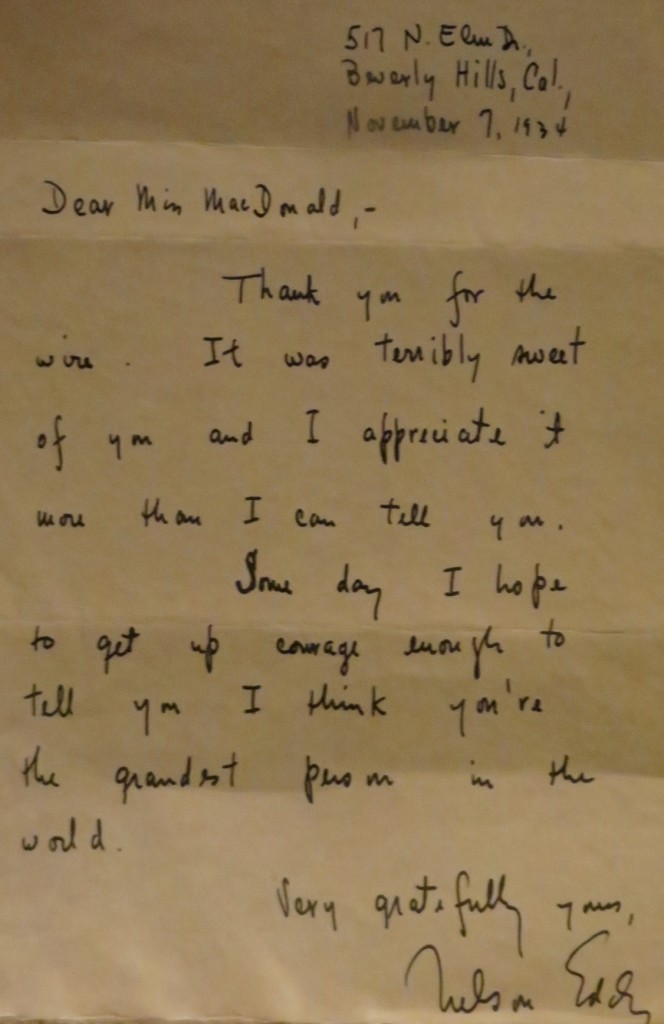 517 N. Elm Dr.,
Beverly Hills, Cal.,
November 7, 1934
Dear Miss MacDonald,-
Thank you for the
wire. It was terribly sweet
of you and I appreciate it
more than I can tell you.
Some day I hope
to get up courage enough to
tell you I think you're
the grandest person in the
world.
Very gratefully yours,
Nelson Eddy